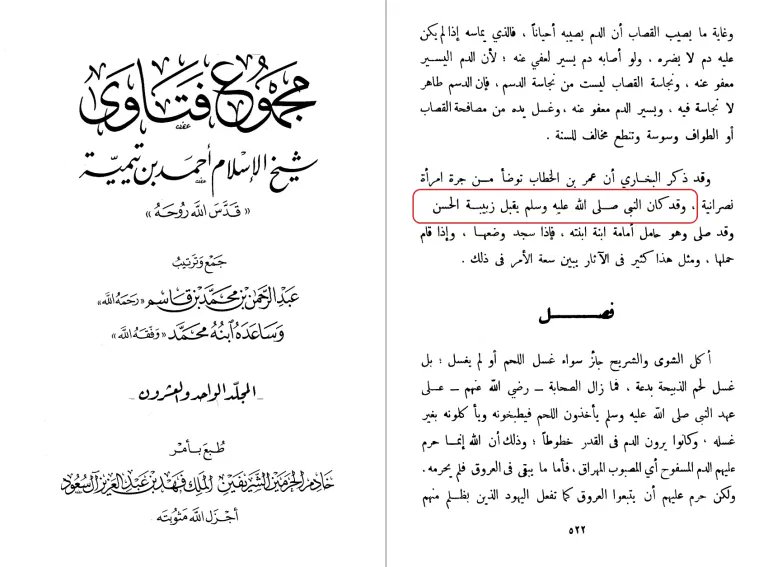 مجموع فتاوى
شيخ الإسلام أحمد بن تيمية
« قَدَّسَ اللَّه رُوحَهُ »
جَمْع وَتَرتيبُ
عبد الرَّحمن بن محمَّد بن قاسم «رَحمَهُ الله»
وَسَاعَدَهُ ابنُهُ محَمَّد «وَفَقَهُ الله»
ـ المجلّد الواحد والعشرون ـ
طُبعَ بأمر
خَادِم الحَرمَين الشَّريفَين الملك فَهد بن عَبد العَزيز آل سعُود
أجزَل اللَّه مَثوبتَه
وغاية ما يصيب القصاب أن الدم يصيبه أحياناً ، فالذي يماسه إذا لم يكن
عليه دم لا يضره ، ولو أصابه دم يسير لعفي عنه ؛ لأن الدم اليسير
معفو عنه ، ونجاسة القصاب ليست من نجاسة الدسم ، فإن الدسم طاهر
لا نجاسة فيه ، ويسير الدم معفو عنه ، وغسل يده من مصافحة القصاب
أو الطواف وسوسة وتنطع مخالف للسنة .
وقد ذكر البخاري أن عمر بن الخطاب توضأ مـن جرة امرأة
نصرانية ، وقد كان النبي صـلى الله عليه وسلم يقبل زبيبـة الحسن
وقد صلى وهو حامل أمامة ابنة ابنته ، فإذا سجد وضعهـا ، وإذا قام
حملها ، ومثل هذا كثير فى الآثار يبين سعة الأمر فى ذلك .
فصـــل
أكل الشوى والشريح جائز سواء غسل اللحم أو لم يغسل ؛ بل
غسل لحم الذبيحة بدعة ، فما زال الصحابة ـ رضي الله عنهم ـ عـلى
عهد النبي صلى الله عليه وسلم يأخذون اللحم فيطبخونه ويأكلونه بغير
غسله . وكانوا يرون الدم فى القدر خطوطاً ؛ وذلك أن الله إنمـا حرم
عليهم الدم المسفوح أي المصبوب المهراق ، فأما ما يبقى فى العروق فلم يحرمه .
ولكن حرم عليهم أن يتبعوا العروق كما تفعل اليهود الذين بظـلم منهم
٥٢٢